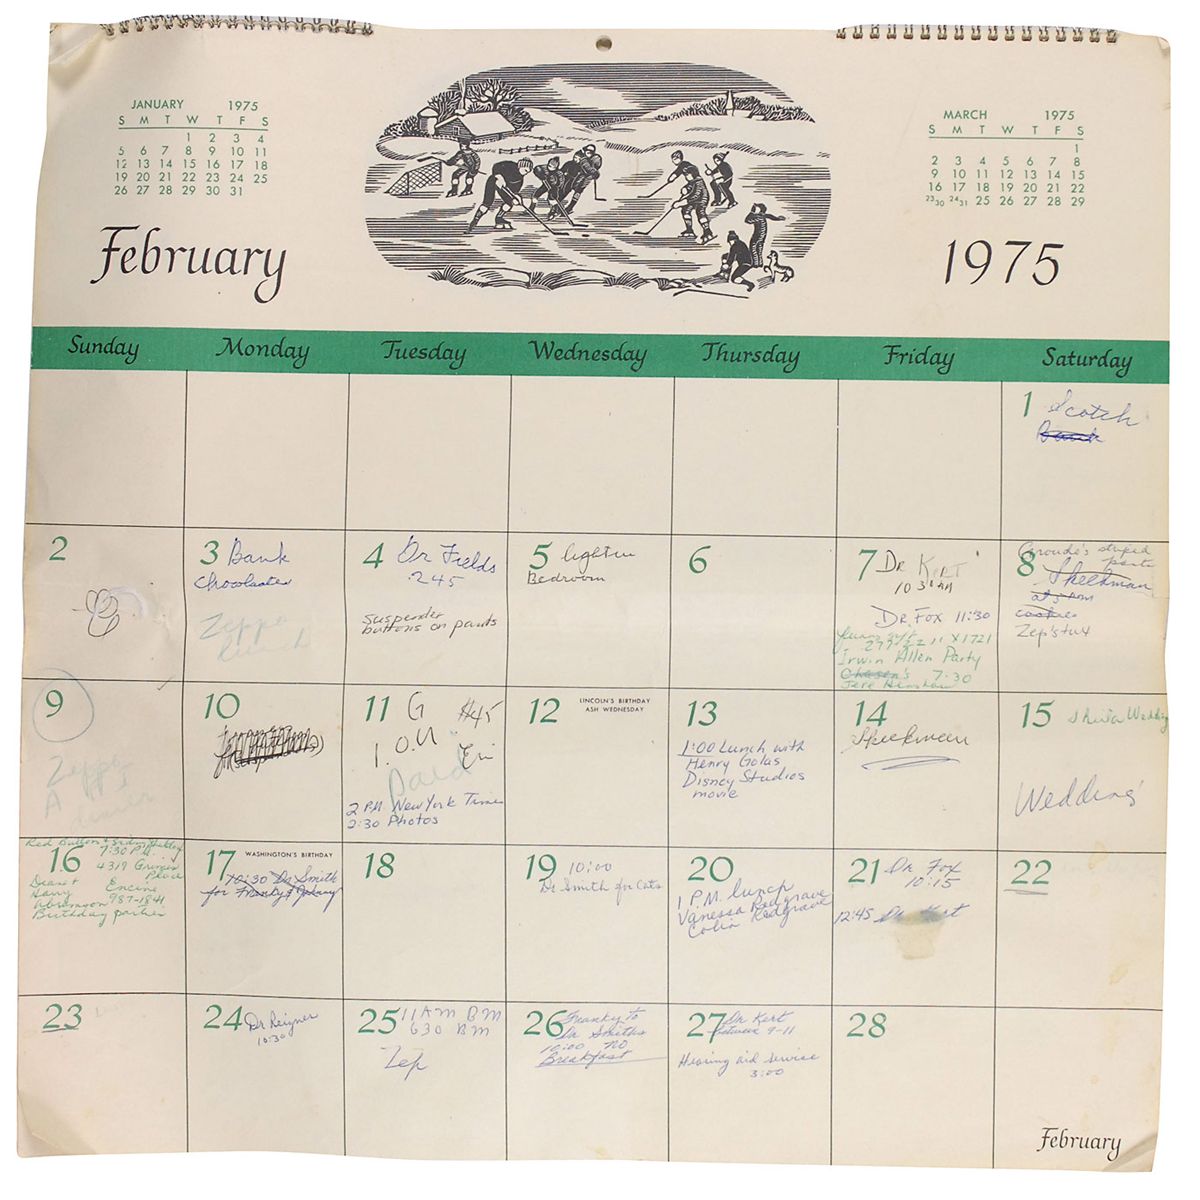 JANUARY 1975
S M T W T F S
1 2 3 4
5 6 7 8 9 10 11
12 13 14 15 16 17 18
19 20 21 22 23 24 25
26 27 28 29 30 31
February
MARCH 1975
S M T W T F S
1
2 3 4 5 6 7 8
9 10 11 12 13 14 15
16 17 18 19 20 21 22
23 30 24 31 25 26 27 28 29
1975
Sunday Monday Tuesday Wednesday Thursday Friday Saturday
1 Scotch
Bank
2
3 Bank
Chocolates
Zeppo
lunch
4 Dr Fields
245
suspender
buttons on pants
5
Bedroom
6
7 Dr Kert
10 30 AM
Dr. Fox 11:30
X1721
Irwin Allen Party
Chasen's 7:30
8 stupid
party
Speckman
at 5 PM
cookies
Zep's tux
9
Zeppo
A
dinner
10
11 G
2 PM New York Times
2:30 Photos
12 LINCOLN'S BIRTHDAY
ASH WEDNESDAY
13
1:00 Lunch with
Henry Golas
Disney Studios
movie
14
Speckman
15 Wedding
Wedding
Red Buttons +
16 7:30 P.M.
4319
Place
Deane +
Harry Encino
987-1841
Birthday parties
17 WASHINGTON'S BIRTHDAY
10:30 Dr Smith
for
18
19 10:00
Dr. Smith for Cats
20
1 P.M. lunch
Vanessa Redgrave
Colin Redgrave
21 Dr. Fox
10:15
12:45 Dr Kert
22
23
24 Dr
10:30
25 11 AM BM
630 BM
Zep
26 Franky to
Dr Smiths
10:00 no
Breakfast
27 Dr Kert
between 9-11
Hearing aid service
3:00
28
February